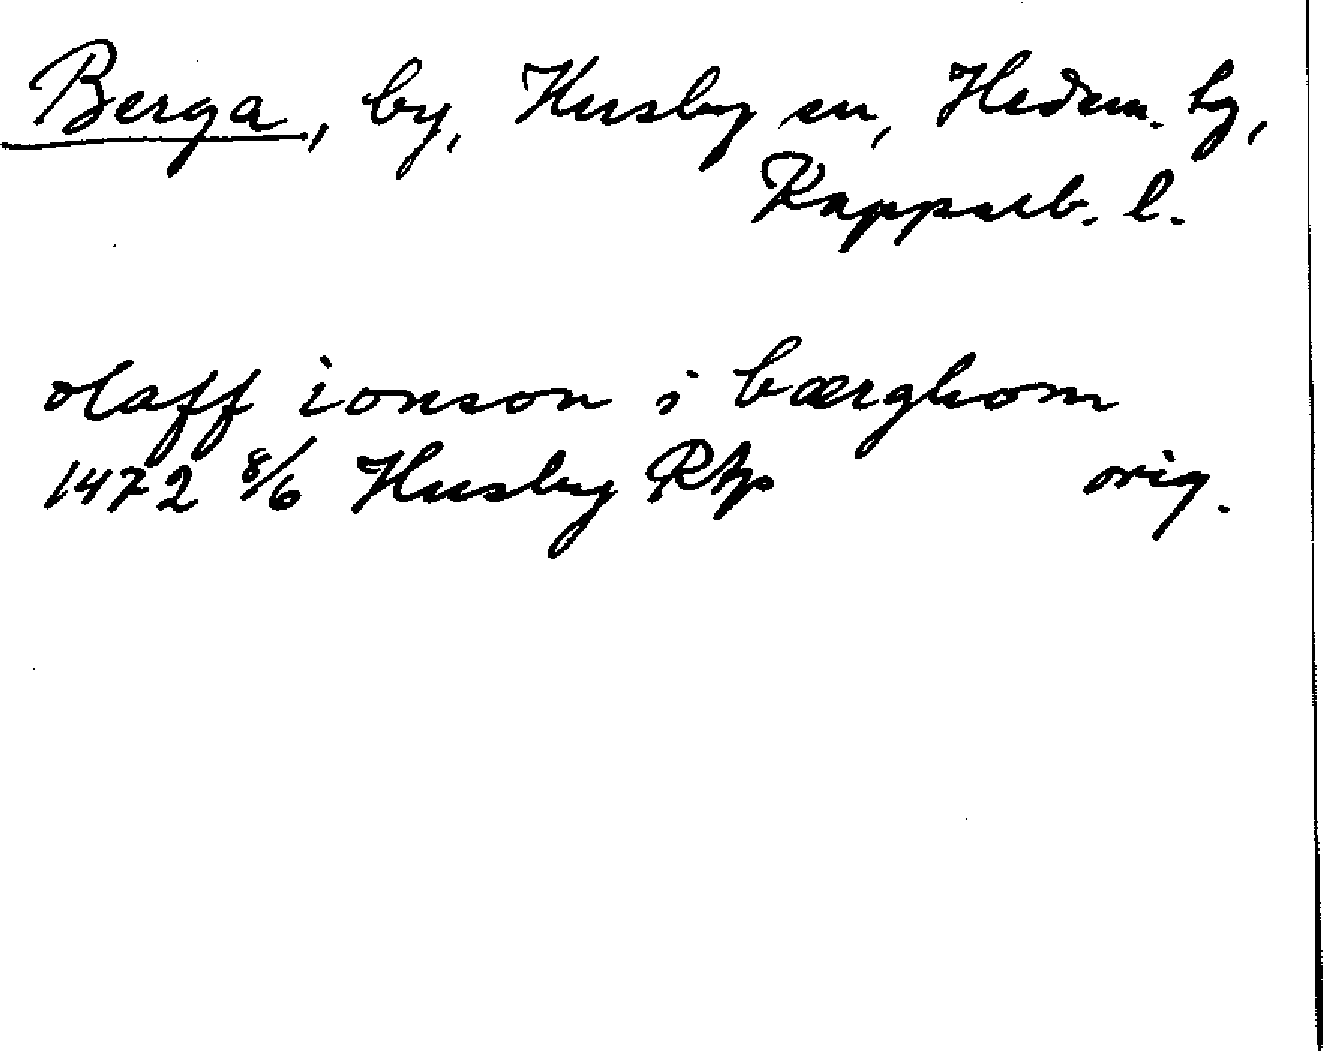 Berga, by, Husby sn, Hedem. tg,
Kopparb. l.
olaff ionson i bærghom
1472 8/6 Husby Rkp orig.